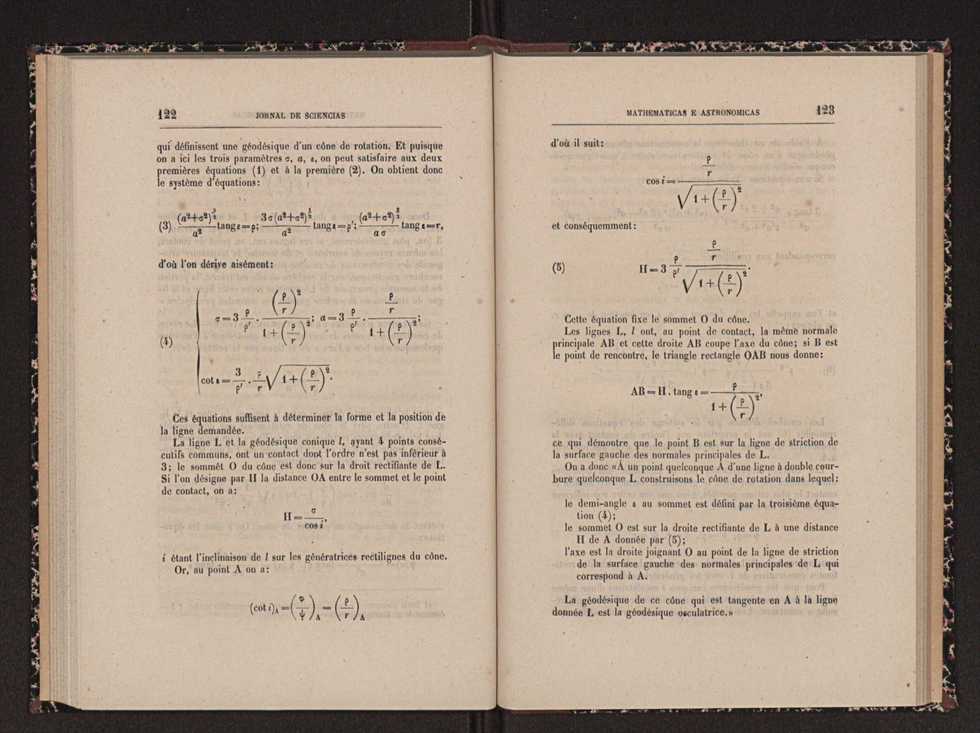 122 JORNAL DE SCIENCIAS
qui définissent une géodésique d'un cône de rotation. Et puisque
on a ici les trois paramètres σ, a, ε, on peut satisfaire aux deux
premières équations (1) et à la première (2). On obtient donc
le système d'équations:
(3) (a²+σ²)^{3/2}/a² tang ε = ρ; 3σ(a²+σ²)^{1/2}/a² tang ε = ρ'; (a²+σ²)^{3/2}/(a σ) tang ε = r,
d'où l'on dérive aisément:
σ = 3 ρ/ρ' . (ρ/r)²/(1+(ρ/r)²); a = 3 ρ/ρ' . (ρ/r)/(1+(ρ/r)²;
(4)
cot ε = 3/ρ' . ρ/r √(1+(ρ/r)²).
Ces équations suffisent à déterminer la forme et la position de
la ligne demandée.
La ligne L et la géodésique conique l, ayant 4 points consé-
cutifs communs, ont un contact dont l'ordre n'est pas inférieur à
3; le sommêt O du cône est donc sur la droit rectifiante de L.
Si l'on désigne par H la distance OA entre le sommet et le point
de contact, on a:
H = σ/cos i,
i étant l'inclinaison de l sur les génératrices rectilignes du cône.
Or, au point A on a:
(cot i)_A = (φ/ψ)_A = (ρ/r)_A
MATHEMATICAS E ASTRONOMICAS 123
d'où il suit:
cos i = (ρ/r)/√(1+(ρ/r)²)
et conséquemment:
(5) H = 3 ρ/ρ' (ρ/r)/√(1+(ρ/r)²).
Cette équation fixe le sommet O du cône.
Les lignes L, l ont, au point de contact, la même normale
principale AB et cette droite AB coupe l'axe du cône; si B est
le point de rencontre, le triangle rectangle OAB nous donne:
AB = H . tang ε = ρ/(1+(ρ/r)²),
ce qui démontre que le point B est sur la ligne de striction de
la surface gauche des normales principales de L.
On a donc «A un point quelconque A d'une ligne à double cour-
bure quelconque L construisons le cône de rotation dans lequel:
le demi-angle ε au sommet est défini par la troisième équa-
tion (4);
le sommet O est sur la droite rectifiante de L à une distance
H de A donnée par (5);
l'axe est la droite joignant O au point de la ligne de striction
de la surface gauche des normales principales de L qui
correspond à A.
La géodésique de ce cône qui est tangente en A à la ligne
donnée L est la géodésique osculatrice.»